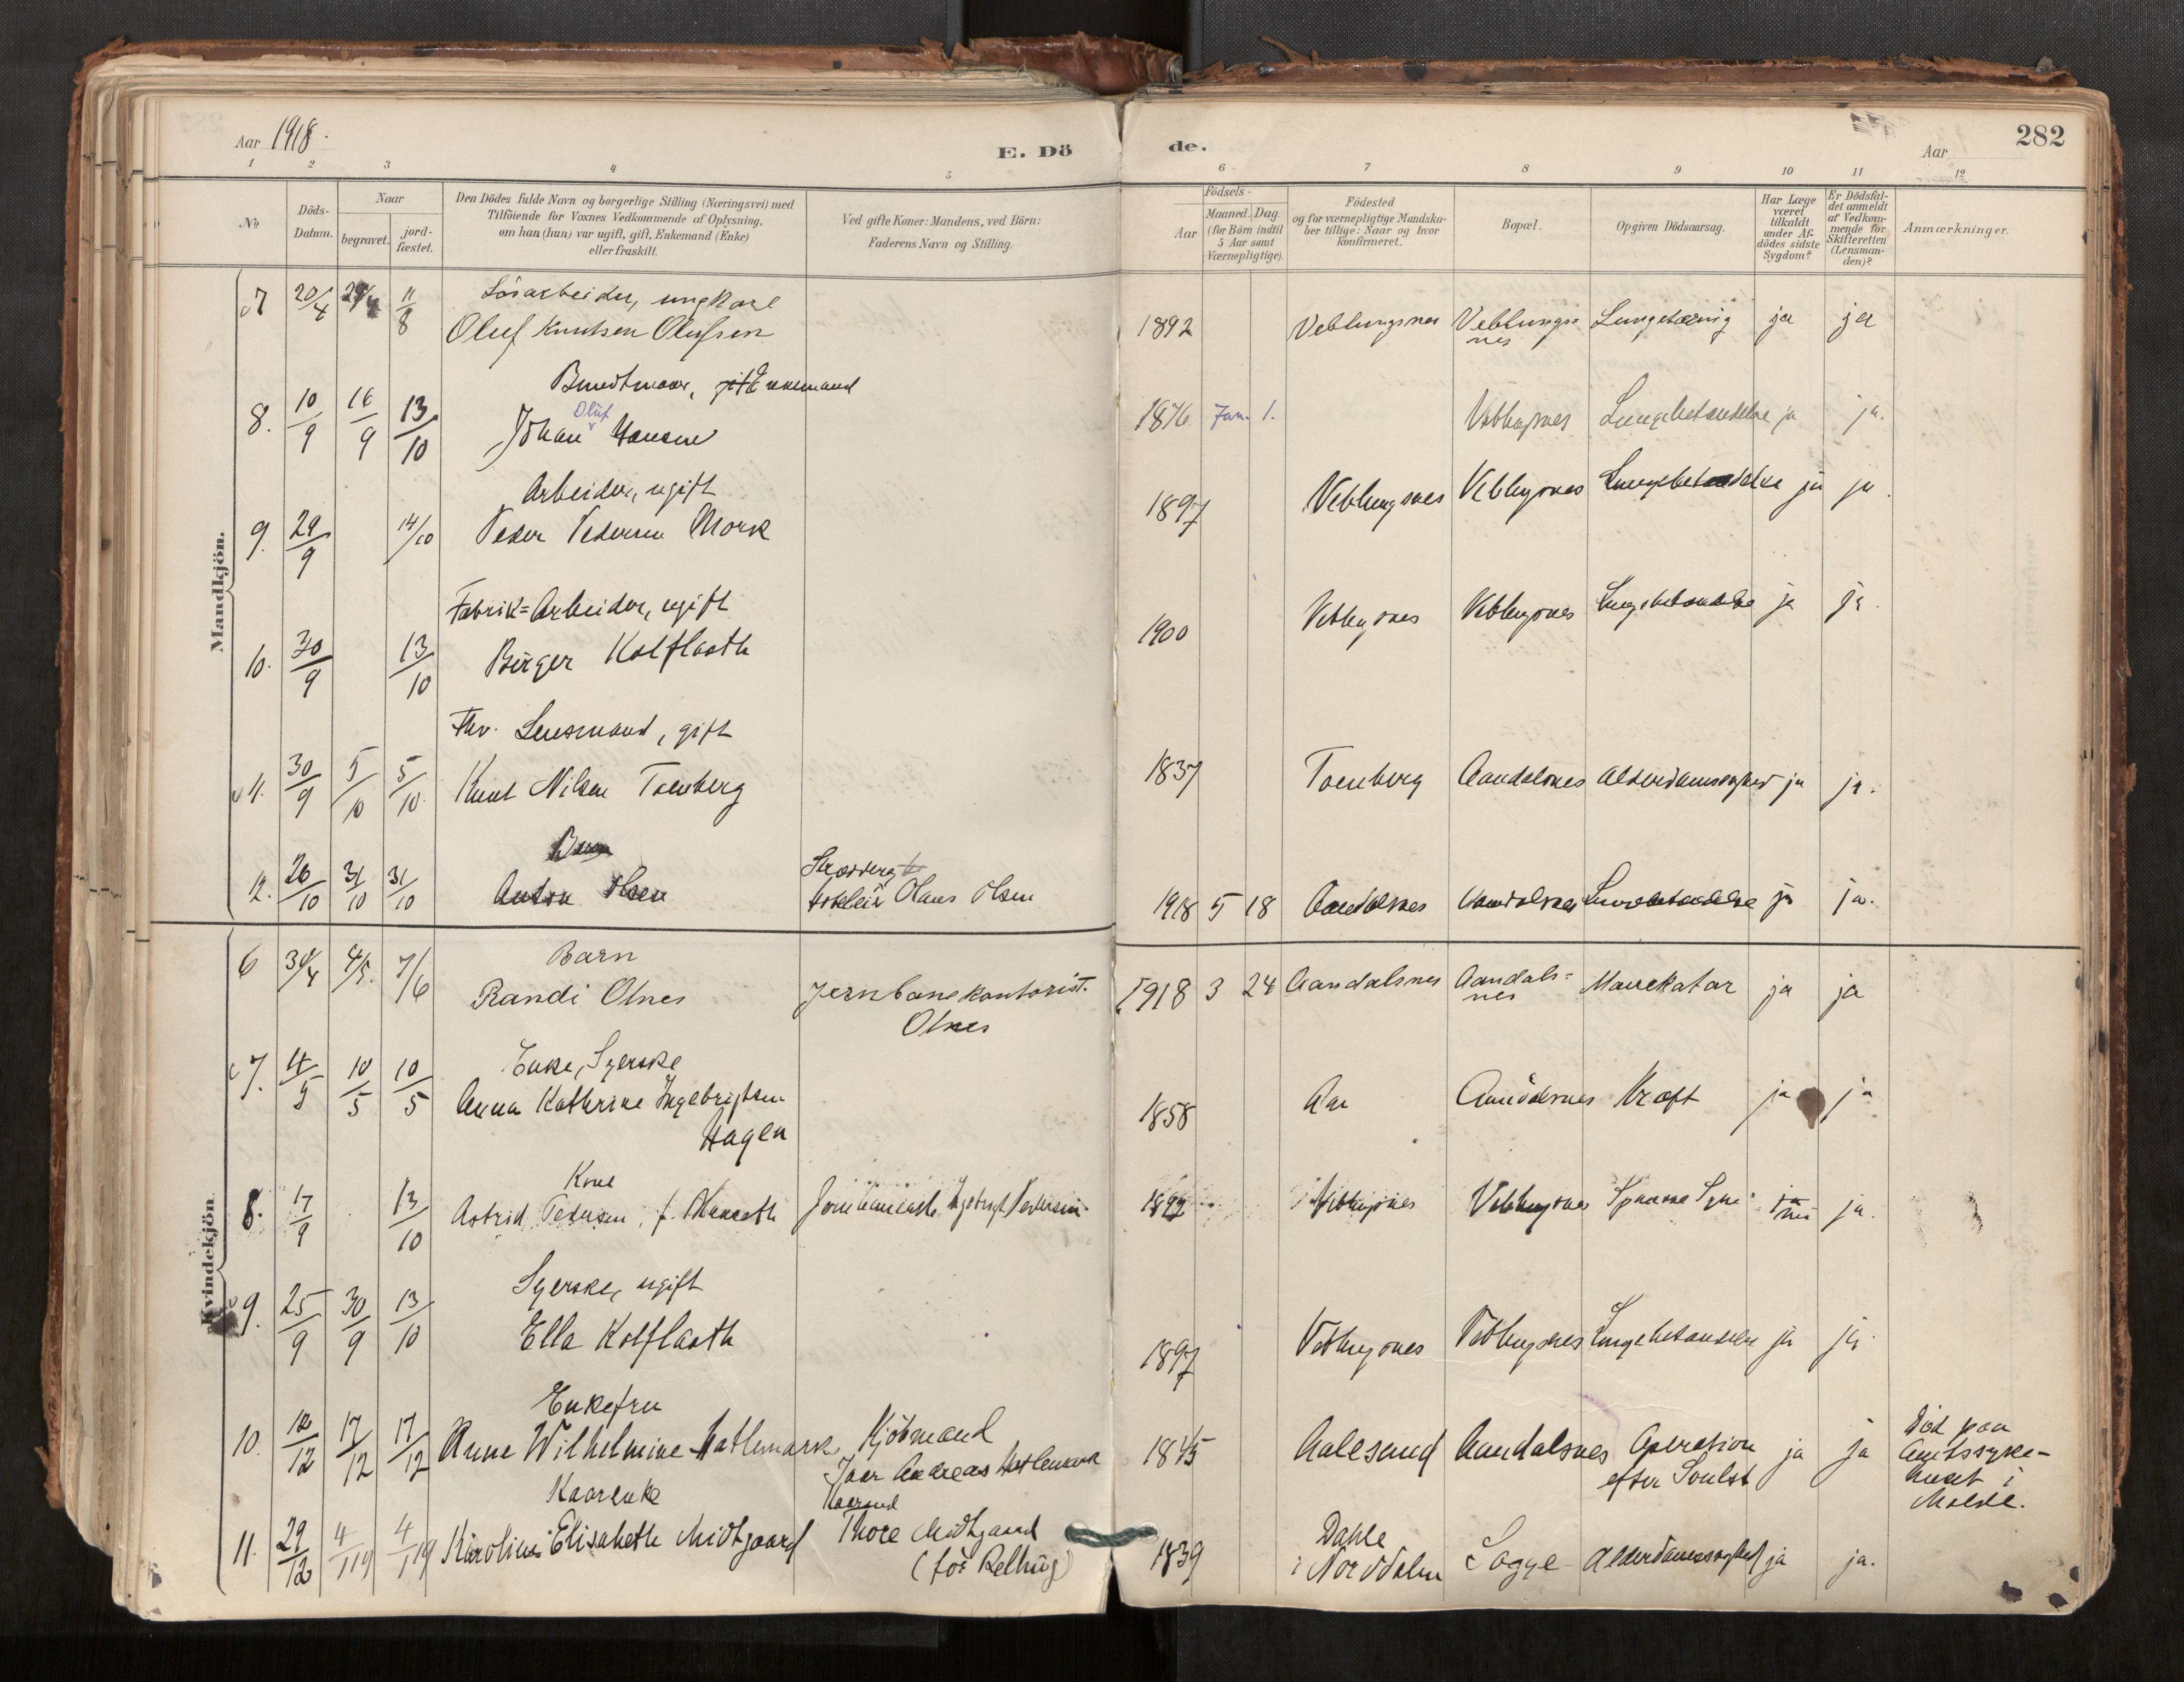 Aar 1918.
E. Dö
de.
Aar
282
1 2 3 4 5 6 7 8 9 10 11 12
No
Döds-Datum.
Naar
begravet.
jord-fæstet.
Den Dödes fulde Navn og borgerlige Stilling (Næringsvei) med
Tilföiende for Voxnes Vedkommende af Oplysning,
om han (hun) var ugift, gift, Enkemand (Enke)
eller fraskilt.
Ved gifte Koner: Mandens, ved Börn:
Faderens Navn og Stilling.
Födsels-
Aar
Maaned. Dag.
(for Börn indtil
5 Aar samt
Værnepligtige).
Födested
og for værnepligtige Mandska-
ber tillige: Naar og hvor
konfirmeret.
Bopæl.
Opgiven Dödsaarsag.
Har Læge
været
tilkaldt
under Af-
dödes sidste
Sygdom?
Er Dödsfal-
det anmeldt
af Vedkom-
mende for
Skifteretten
(Lensman-
den)?
Anmærkninger.
Mandkjön.
Lösarbeider, ungkarl
7 20/4 11/8 Oluf Knutsen Olufsen 1892 Veblungsnes Veblungs=
nes Lungetæring ja ja
Buntmaker, gift Enkemand
Oluf
8. 10/9 16/9 13/10 Johan Hansen 1876 Jan. 1. Veblugsnes Lungebetændelse ja ja.
Arbeider, ugift
9. 29/9 14/10 Peder Pedersen Mork 1897 Veblungsnes Veblugsnes Lungebetændelse ja ja.
Fabrik=Arbeider, ugift
10. 30/9 13/10 Birger Kolflaath 1900 Veblugsnes Veblugsnes Lungebetændelse ja ja.
Fhv. Lensmand, gift
11. 30/9 5/10 5/10 Knut Nilsen Torvberg 1837 Torvberg Aandalsnes Alderdomssvaghed ja ja.
Barn
12. 26/10 31/10 31/10 Anton Olsen Olaus Olsen 1918 5 18 Aandalsnes Aandalsnes Lungebetændelse ja ja.
Kvindekjön
Barn
6 30/4 4/5. 7/6 Randi Olnes Jernbanekontorist.
Olnes 1918 3 24 Aandalsnes Aandals=
nes Mavekatar ja ja
Enke, Syerske
7. 4/5 10/5 10/5 Anna Kathrine Ingebrigtsen
Hagen 1858 Aandalsnes Kræft ja ja
Kone
8. 17/9 13/10 Astrid Pedersen, f. Ingebrigt Pedersen Veblugsnes Veblugsnes Spanske Syke ja.
Syerske, ugift
9. 25/9 30/9 13/10 Ella Kolflaath 1897 Veblugsnes Veblugsnes Lungebetændelse ja ja.
Enkefru
10. 12/12 17/12 17/12 Anne Wilhelmine Hatlemark Kjöbmand
Ivar Andreas Hatlemark 1845 Aalesund Aandalsnes Operation
efter Svulst ja ja Död paa
Amtssyke-
huset i
Molde.
Kaarenke
11. 29/12 4/1 19 4/1 19 Karoline Elisabeth Midtgaard Kaarmand
Thore Midtgaard
(för Relling) 1839 Dahle
i Norddalen Sogge Alderdomssvaghed ja ja.